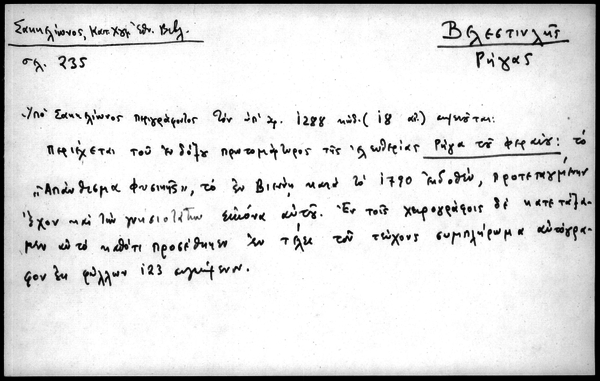 Σακκελίωνος, Κατ. Χγφ. Ἐθν. Βιβλ.
σελ. 235
Βελεστινλῆς
Ρήγας
Ὑπὸ Σακκελίωνος περιγράφοντος τὸν ὑπ' ἀρ. 1288 κώδ. (18 αἰ.) σημειοῦται:
Περιέχεται τοῦ ἐνδόξου πρωτομάρτυρος τῆς ἐλευθερίας Ρήγα τοῦ Φεραίου: τὸ
"Ἀπάνθισμα φυσικῆς", τὸ ἐν Βιέννῃ κατὰ τὸ 1790 ἐκδοθέν, προτεταγμένην
ἔχον καὶ τὴν γνησιοτάτην εἰκόνα αὐτοῦ. Ἐν τοῖς χειρογράφοις δὲ κατετάξα-
μεν αὐτὸ καθότι προσέθηκεν ἐν τέλει τοῦ τεύχους συμπλήρωμα αὐτόγρα-
φον ἐκ φύλλων 123 συγκείμενον.